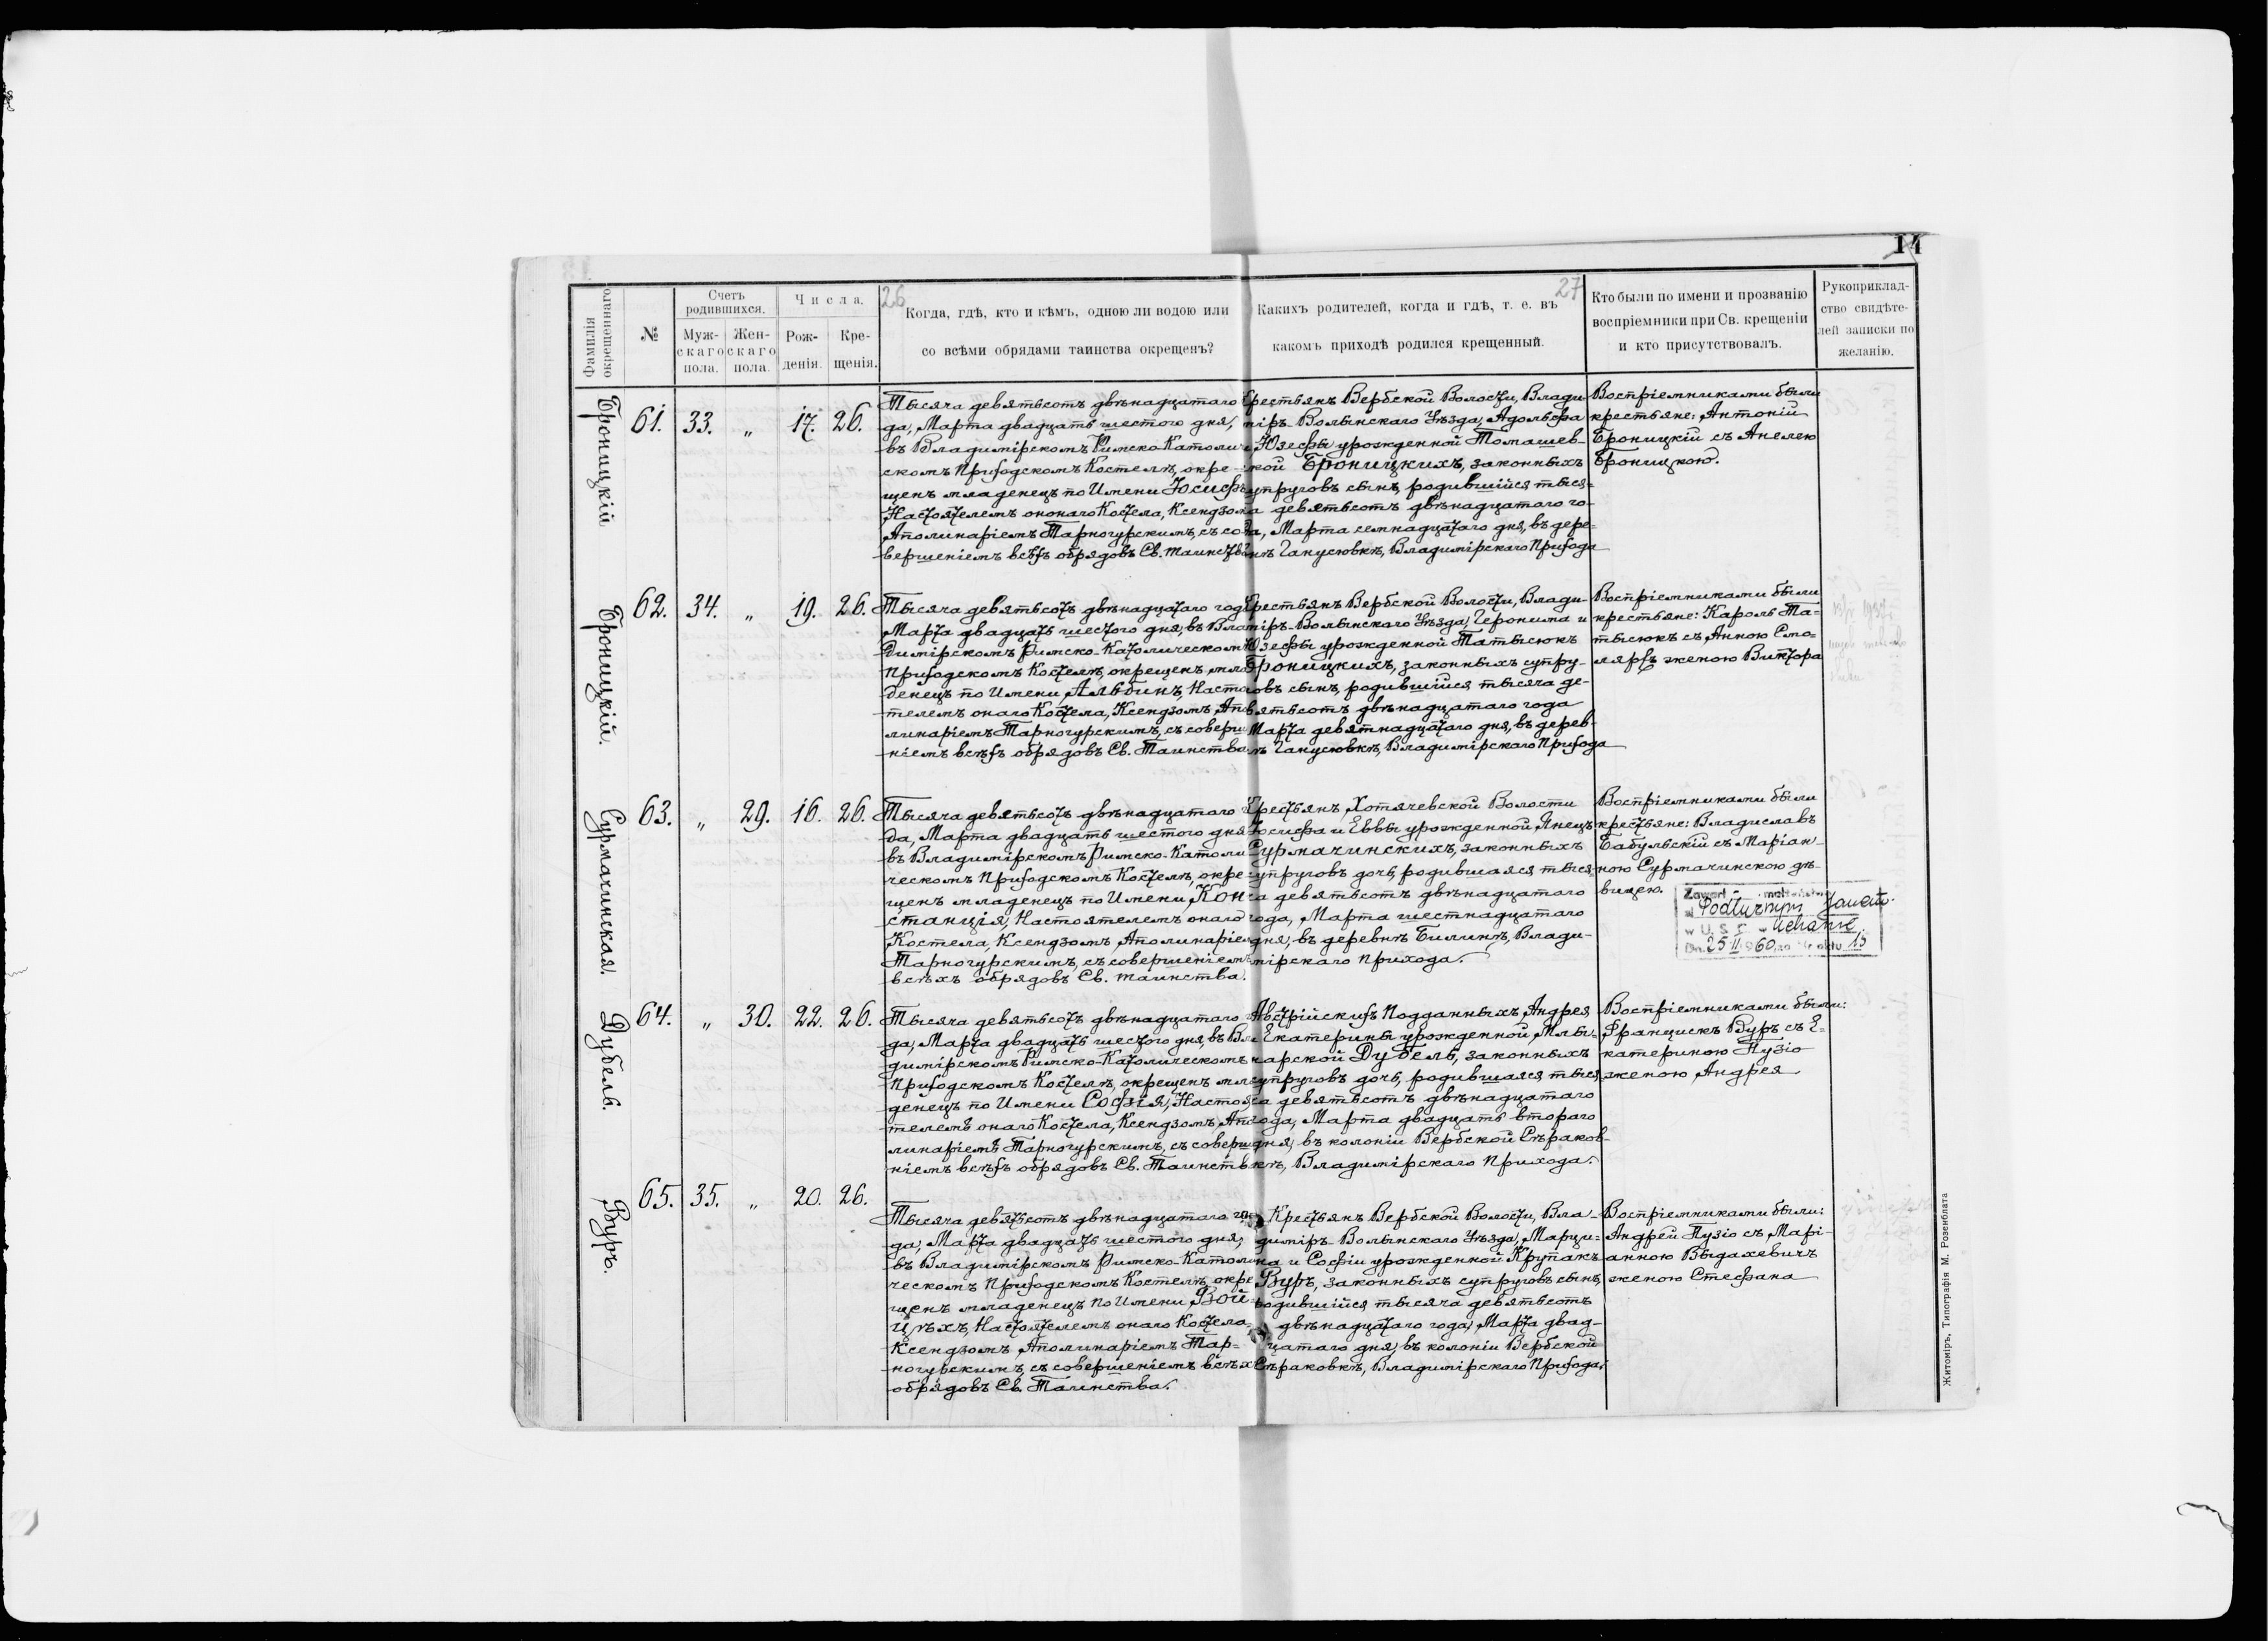 14
26
27
Фамилія окрещеннаго.
№
Счетъ родившихся.
Муж-скаго пола.
Жен-скаго пола.
Числа.
Рож-денія.
Кре-щенія.
Когда, гдѣ, кто и кѣмъ, одною ли водою или
со всѣми обрядами таинства окрещенъ?
Какихъ родителей, когда и гдѣ, т. е. въ
какомъ приходѣ родился крещенный.
Кто были по имени и прозванію
воспріемники при Св. крещеніи
и кто присутствовалъ.
Рукоприклад-
ство свидѣте-
лей записки по
желанію.
Броницкій
61. 33. „ 17. 26.
Тысяча девятьсотъ двѣнадцатаго
да, Марта двадцать шестого дня,
въ Владимірскомъ Римско-Католиче
скомъ Приходскомъ Костелѣ, окре-
щенъ младенецъ по Имени Юсифъ
Настоятелемъ ононаго Костела, Ксендзом
Аполинаріемъ Тарногурскимъ, съ со
вершеніемъ всѣхъ обрядовъ Св. таинства
Крестьянъ Вербской Волости, Влади
міръ-Волынскаго Уѣзда, Адольфа
и Юзефы урожденной Томашев-
ской Броницкихъ, законныхъ
супруговъ сынъ, родившійся тыся-
ча девятьсотъ двѣнадцатаго го-
да, Марта семнадцатаго дня, въ дере-
внѣ Ганусювкѣ, Владимірскаго Прихода
Воспріемниками были
крестьяне: Антоній
Броницкій съ Анелею
Броницкою.
Броницкій.
62. 34. „ 19. 26.
Тысяча девятьсотъ двѣнадцатаго года
Марта двадцать шестого дня, въ Вла
димірскомъ Римско-Католическомъ
Приходскомъ Костелѣ, окрещенъ мла
денецъ по Имени Альбинъ, Насто
телемъ онаго Костела, Ксендзомъ Апо
линаріемъ Тарногурскимъ, съ соверше
ніемъ всѣхъ обрядовъ Св. Таинства
Крестьянъ Вербской Волости, Влади-
міръ-Волынскаго Уѣзда, Геронима и
Юзефы урожденной Татысюкъ
Броницкихъ, законныхъ супру-
говъ сынъ, родившійся тысяча де-
вятьсотъ двѣнадцатаго года
Марта девятнадцатаго дня, въ дерев-
нѣ Ганусювкѣ, Владимірскаго Прихода
Воспріемниками были
крестьяне: Кароль Та-
тысюкъ съ Анною Смо-
ляръ женою Виктора
Сурмачинская.
63. „ 29. 16. 26.
Тысяча девятьсотъ двѣнадцатаго
да, Марта двадцать шестого дня
въ Владимірскомъ Римско-Католи
ческомъ Приходскомъ Костелѣ, окре-
щенъ младенецъ по Имени Кон-
станція, Настоятелемъ онаго
Костела, Ксендзомъ Аполинаріем
Тарногурскимъ, съ совершеніемъ
всѣхъ обрядовъ Св. таинства.
Крестьянъ, Хотячевской Волости
Юсифа и Еввы урожденной Янецъ
Сурмачинскихъ, законныхъ
супруговъ дочь, родившаяся тыся-
ча девятьсотъ двѣнадцатаго
года, Марта шестнадцатаго
дня, въ деревнѣ Билинѣ, Влади-
мірскаго прихода.
Воспріемниками были
крестьяне: Владиславъ
Бабульскій съ Маріан-
ною Сурмачинскою дѣ-
вицею.
Zawarł małżeństwo
w Podturzyn
w U. S. C. w Uchanie
Dn. 25 II 1960 za Nr aktu 15
Дубель.
64. „ 30. 22. 26.
Тысяча девятьсотъ двѣнадцатаго
да, Марта двадцать шестого дня, въ Вла
димірскомъ Римско-Католическомъ
Приходскомъ Костелѣ, окрещенъ мла
денецъ по Имени Софія, Настоя
телемъ онаго Костела, Ксендзомъ Апо
линаріемъ Тарногурскимъ, съ соверше
ніемъ всѣхъ обрядовъ Св. Таинства
Австрійскихъ Подданныхъ, Андрея
и Екатерины урожденной Млы-
нарской Дубель, законныхъ
супруговъ дочь, родившаяся тыся
ча девятьсотъ двѣнадцатаго
года, Марта двадцать втораго
дня, въ колоніи Вербской Сѣраков-
кѣ, Владимірскаго прихода.
Воспріемниками были:
Францискъ Вуръ съ Е-
катериною Пузіо
женою Андрея
Вуръ.
65. 35. „ 20. 26.
Тысяча девятьсотъ двѣнадцатаго го
да, Марта двадцать шестого дня,
въ Владимірскомъ Римско-Католи
ческомъ Приходскомъ Костелѣ, окре
щенъ младенецъ по Имени Вой-
цѣхъ, Настоятелемъ онаго Костела
Ксендзомъ Аполинаріемъ Тар-
ногурскимъ, съ совершеніемъ всѣхъ
обрядовъ Св. Таинства.
Крестьянъ Вербской Волости, Вла-
диміръ-Волынскаго Уѣзда, Марци-
на и Софіи урожденной Крупакъ
Вуръ, законныхъ супруговъ сынъ,
родившійся тысяча девятьсотъ
двѣнадцатаго года, Марта двад-
цатаго дня, въ колоніи Вербской
Сѣраковкѣ, Владимірскаго Прихода.
Воспріемниками были:
Андрей Пузіо съ Марі-
анною Выдахевичъ
женою Стефана
Житоміръ, Типографія М. Розенблата